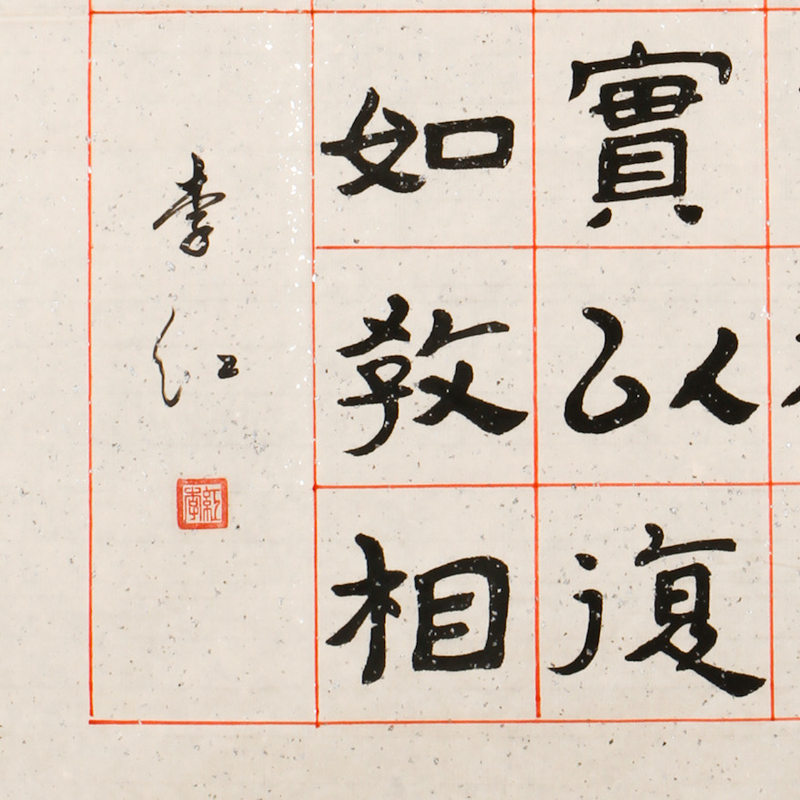 實以復
如敎相
李红
李紅